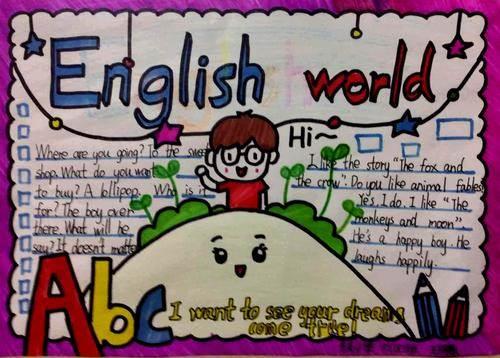 English world
Hi~
Where are you going? To the sweet
shop. What do you want
to buy? A lollipop. Who is it
for? The boy over
there. What will he
say? It doesn't matte
I like the story "The fox and
the crow". Do you like animal fables
Yes. I do. I like "The
monkeys and moon"
He's a happy boy. He
laughs happily.
Abc
I want to see your dreams
come true!